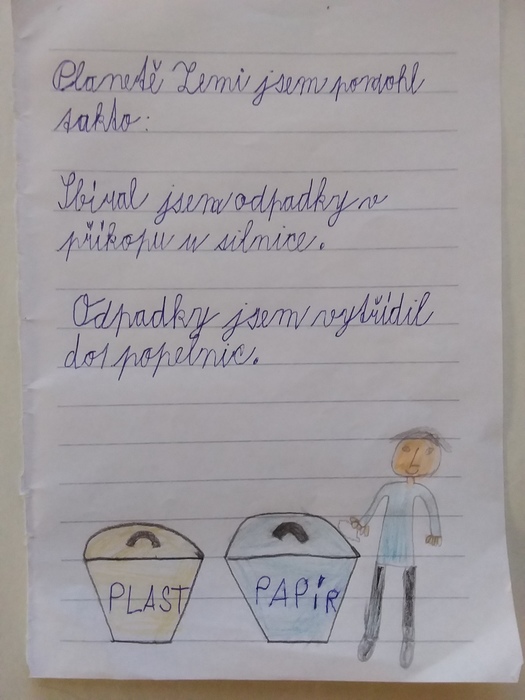 Planetě Zemi jsem pomohl
takto:
Sbíral jsem odpadky v
příkopu u silnice.
Odpadky jsem vytřídil
do popelnic.
PLAST
PAPíR